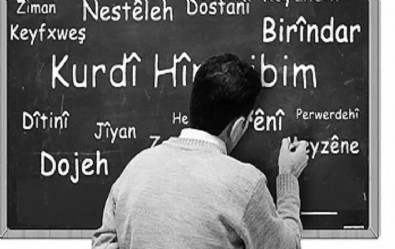 Ziman Nestêleh Dostanî
Keyfxweş Birîndar
Kurdî Hîn ibim
Dîtinî Jîyan He ênî Perwerdehî
Dojeh eyzêne